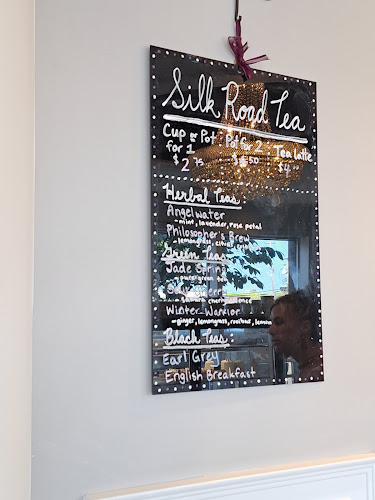 Silk Road Tea
Cup or Pot for 1
$2.75
Pot for 2
$4.50
Tea Latte
$4
Herbal Teas
Angelwater
- mint, lavender, rose petal
Philosopher's Brew
- lemongrass, citrus,
Green Teas
Jade Spring
- pure green tea
- sakura cherry essence
Winter Warrior
- ginger, lemongrass, rooibos,
Black Teas:
Earl Grey
English Breakfast